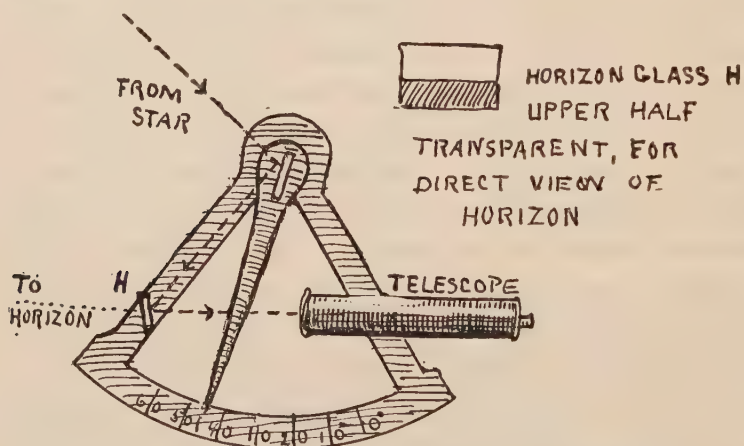 FROM
STAR
HORIZON GLASS H
UPPER HALF
TRANSPARENT, FOR
DIRECT VIEW OF
HORIZON
TO H
HORIZON
TELESCOPE
60 50 40 20